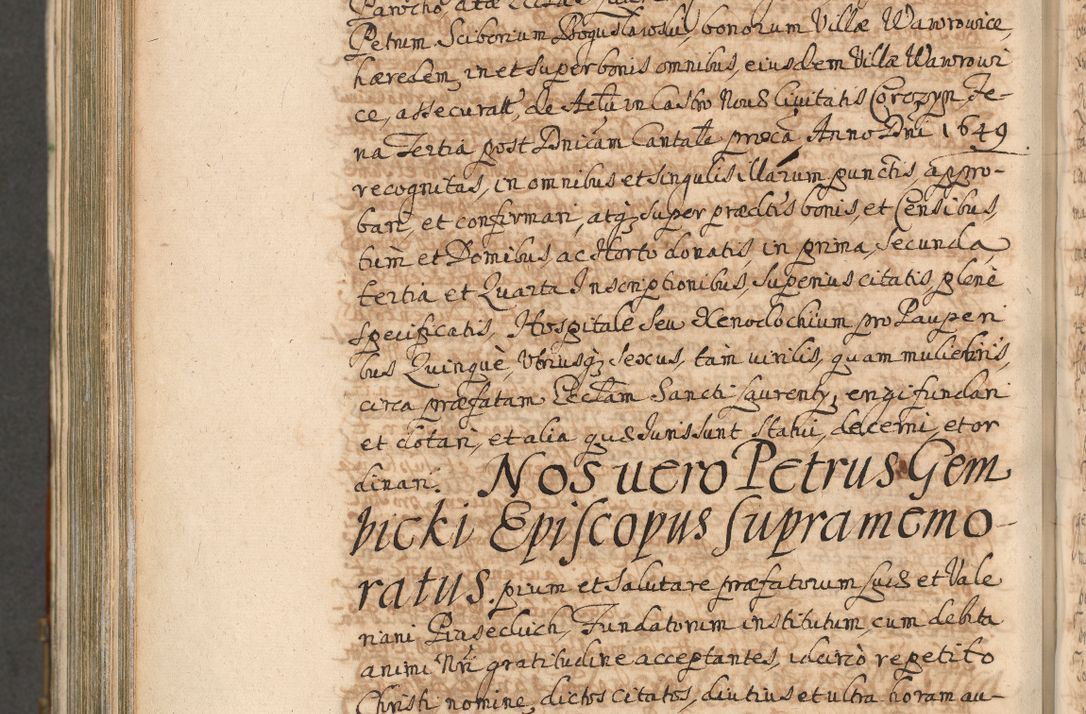 Petrum Sciborium Boguslawski, bonorum Villæ Wawrowice,
hæredem, in et super bonis omnibus, eiusdem Villæ Wawrowi
ce, assecurat, de Actu in Castro Novæ Civitatis Corczyn Fe-
ria Tertia post Dnicam Cantate proxa Anno Dni 1649
recognitas, in omnibus et singulis illarum punctis, appro-
bari, et confirmari, atq; super prædictis bonis, et Censibus,
tum et Domibus, ac Horto donatis, in prima, secunda,
tertia et Quarta Inscriptionibus, superius citatis, plene
specificatis, Hospitale seu Xenodochium pro Pauperi
bus Quinque, Utriusq; sexus, tam virilis, quam muliebris,
circa præfatam Ecclam Sancti Laurenty, erigi fundari
et dotari, et alia quæ Juris sunt statui, decerni, et or
dinari. Nos vero Petrus Gem
bicki Episcopus supramemo
ratus. pium et salutare præfatorum Luæ et Vale
riani Piaseckich, Fundatorum institutum, cum debita
animi Nri gratitudine acceptantes, idcirco repetito
Christi nomine, dictos citatos, diutius et ultra horam au-